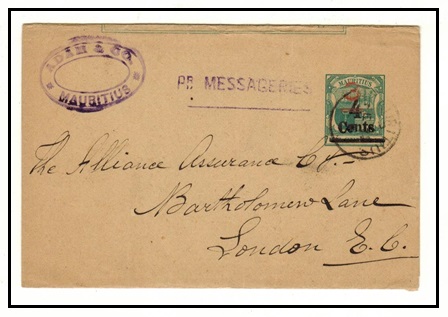 ADAM & CO.
MAURITIUS
PR MESSAGERIES
MAURITIUS
4
Cents
The Alliance Assurance Cy.-
Bartholomew Lane
London E.C.